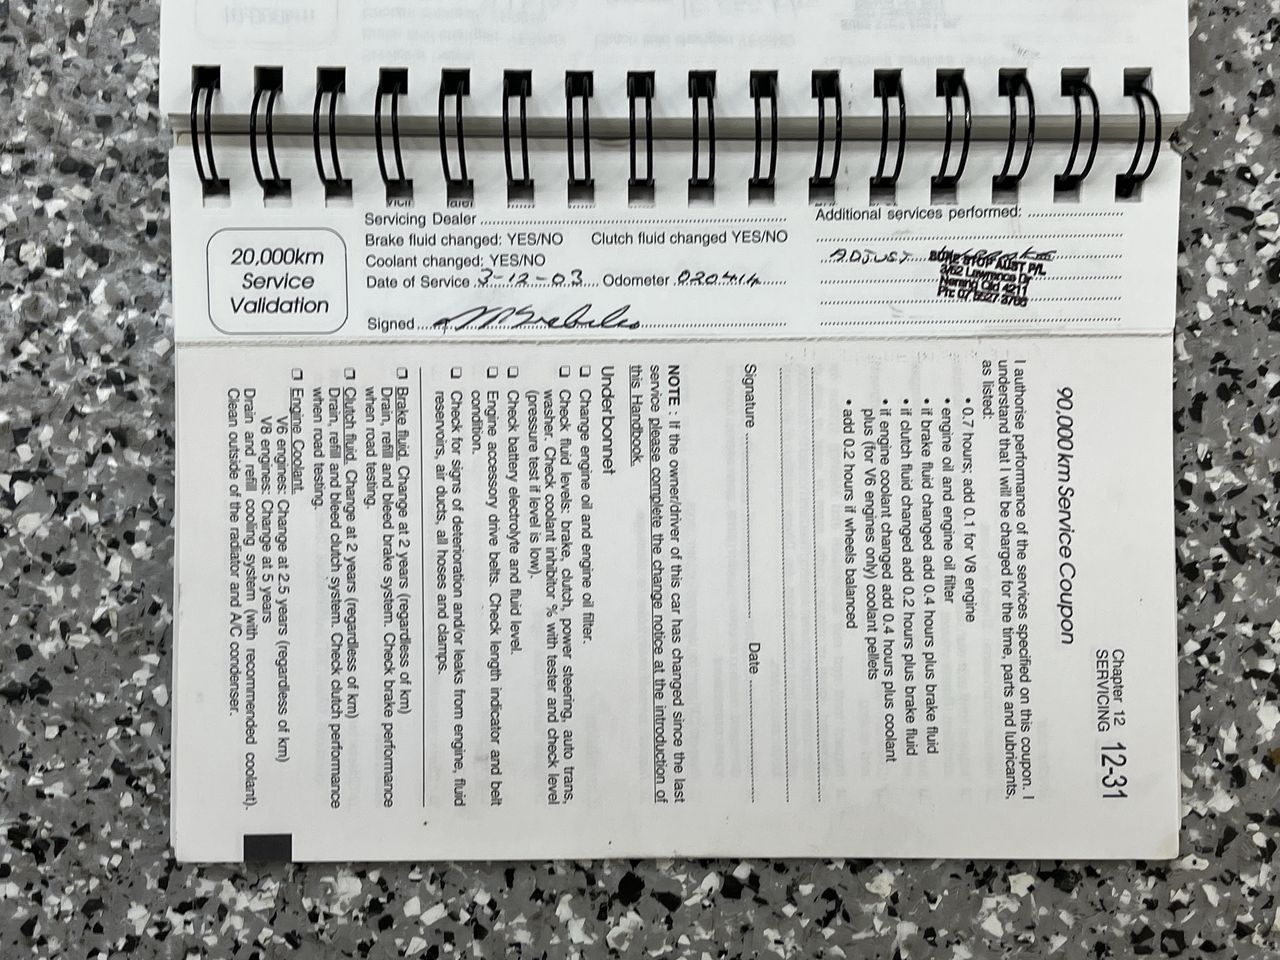 20,000km
Service
Validation
Servicing Dealer
Brake fluid changed: YES/NO Clutch fluid changed YES/NO
Coolant changed: YES/NO
Date of Service 3-12-03 Odometer 020414
Signed
Additional services performed:
ADJUST
AUST P/L
Lawrence Dr
Nerang Qld 4211
90,000 km Service Coupon
Chapter 12
SERVICING 12-31
I authorise performance of the services specified on this coupon. I
understand that I will be charged for the time, parts and lubricants,
as listed:
• 0.7 hours; add 0.1 for V8 engine
• engine oil and engine oil filter
• if brake fluid changed add 0.4 hours plus brake fluid
• if clutch fluid changed add 0.2 hours plus brake fluid
• if engine coolant changed add 0.4 hours plus coolant
plus (for V6 engines only) coolant pellets
• add 0.2 hours if wheels balanced
Signature Date
NOTE : If the owner/driver of this car has changed since the last
service please complete the change notice at the introduction of
this Handbook.
Underbonnet
❑ Change engine oil and engine oil filter.
❑ Check fluid levels: brake, clutch, power steering, auto trans,
washer. Check coolant inhibitor % with tester and check level
(pressure test if level is low).
❑ Check battery electrolyte and fluid level.
❑ Engine accessory drive belts. Check length indicator and belt
condition.
❑ Check for signs of deterioration and/or leaks from engine, fluid
reservoirs, air ducts, all hoses and clamps.
❑ Brake fluid. Change at 2 years (regardless of km)
Drain, refill and bleed brake system. Check brake performance
when road testing.
❑ Clutch fluid. Change at 2 years (regardless of km)
Drain, refill and bleed clutch system. Check clutch performance
when road testing.
❑ Engine Coolant.
V6 engines: Change at 2.5 years (regardless of km)
V8 engines: Change at 5 years
Drain and refill cooling system (with recommended coolant).
Clean outside of the radiator and A/C condenser.